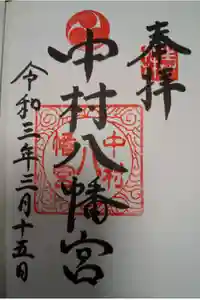 奉拝
中村八幡宮
令和三年三月十五日
中村八幡宮